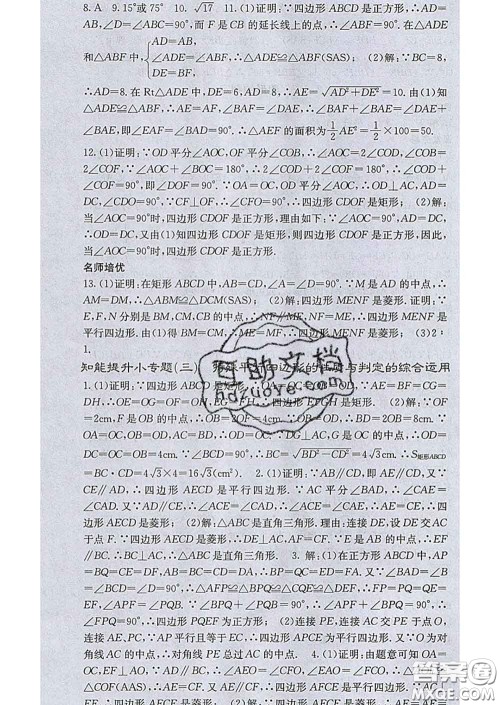 8.A 9.15°或75° 10. √17 11.(1)证明:∵四边形ABCD是正方形,∴AD=AB,∠ADE=∠ABC=90°,而F是CB的延长线上的点,∴∠ABF=90°. 在△ADE
和△ABF中,{AD=AB, ∠ADE=∠ABF, DE=BF, ∴△ADE≌△ABF(SAS); (2)解:∵BC=8,
∴AD=8. 在Rt△ADE中,DE=6,AD=8,∴AE=√AD²+DE²=10. 由(1)知
△ADE≌△ABF,∴AE=AF,∠BAF=∠DAE,∴∠BAF+∠BAE=∠DAE+
∠BAE,即∠EAF=∠BAD=90°. ∴△AEF的面积为1/2AE²=1/2×100=50.
12.(1)证明:∵OD平分∠AOC,OF平分∠COB,∴∠AOC=2∠COD,∠COB=
2∠COF,∵∠AOC+∠BOC=180°,∴2∠COD+2∠COF=180°,∴∠COD+
∠COF=90°,即∠DOF=90°. ∵OA=OC,OD平分∠AOC,∴OD⊥AC,AD=
DC,∴∠CDO=90°,∵CF⊥OF,∴∠CFO=90°,∴四边形CDOF是矩形; (2)解:
当∠AOC=90°时,四边形CDOF是正方形,理由如下:∵∠AOC=90°,AD=DC,
∴OD=DC,又由(1)知四边形CDOF是矩形,则四边形CDOF是正方形. 因此,
当∠AOC=90°时,四边形CDOF是正方形.
名师培优
13.(1)证明:在矩形ABCD中,AB=CD,∠A=∠D=90°. ∵M是AD的中点,∴
AM=DM,∴△ABM≌△DCM(SAS); (2)解:四边形MENF是菱形. 证明:∵
E,N分别是BM,CB的中点,∴NE∥MF,NE=MF,∴四边形MENF是
平行四边形. 由(1)得BM=CM,∴ME=MF,∴四边形MENF是菱形; (3)2∶
1.
知能提升小专题(三) 特殊平行四边形的性质与判定的综合运用
1.(1)证明:∵四边形ABCD是矩形,∴OA=OB=OC=OD. ∵AE=BF=CG=
DH,∴OE=OF=OG=OH,∴四边形EFGH是矩形. (2)解:∵OF=
2cm,F是OB的中点,∴OB=2OF=4cm,∴BD=2OB=8cm. ∵
OA=OC,OB=OD,DG⊥AC,G是OC的中点,∴OD=CD,
OA=OC=OB=OD=4cm. ∴BC=√BD²−CD²=4√3(cm). ∴S矩形ABCD
=BC·CD=4√3×4=16√3(cm²). 2.(1)证明:∵AB∥CD,即AE∥CD,又∵
CE∥AD,∴四边形AECD是平行四边形. ∵AC平分∠BAD,∴∠CAE=
∠CAD. 又∵AE∥CD,∴∠ACD=∠CAE,∴∠ACD=∠CAD,∴AD=CD,∴
四边形AECD是菱形; (2)解:△ABC是直角三角形. 理由:连接DE,设DE交AC
于点F. ∵四边形AECD是菱形,∴DE⊥AC,AF=CF. ∵E是AB的中点,∴EF
∥BC. ∴BC⊥AC,∴△ABC是直角三角形. 3.解:(1)在正方形ABCD中,AP
=BQ=CE=DF,AB=BC=CD=DA,∴BP=QC=ED=FA. 又∵∠BAD=∠B
=∠BCD=∠D=90°,∴△AFP≌△BPQ≌△CQE≌△DEF,∴FP=PQ=QE=
EF,∠APF=∠PQB. ∵∠BPQ+∠PQB=90°,∴∠APF+∠BPQ=90°,∴
∠FPQ=90°,∴四边形PQEF为正方形; (2)连接PE,连接AC交PE于点O,
连接AE,PC,∵AP平行且等于EC,∴四边形APCE为平行四边形. 又∵O为对
角线AC的中点,∴对角线PE总过AC的中点. 4.(1)证明:由题意可知OA=
OC,EF⊥AO,∵AD∥BC,∴∠AEO=∠CFO,∠EAO=∠FCO,∴△AEO≌
△CFO(AAS),∴AE=CF. 又AE∥CF,∴四边形AECF是平行四边形. ∵AC⊥
互助文档
hdzuoye.com
答案圈
MXQE.COM